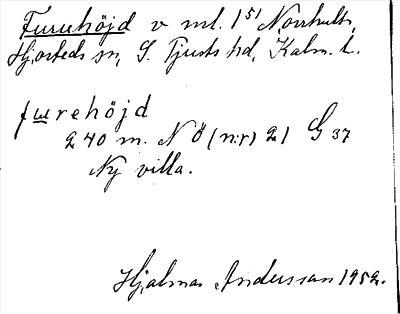 Furuhöjd v ml. 1⁵¹ Norrhult,
Hjorteds sn, S. Tjusts hd, Kalm. l.
furehöjd
240 m. NÖ (n:r) 21 G 37
Ny villa.
Hjalmar Andersson 1952.